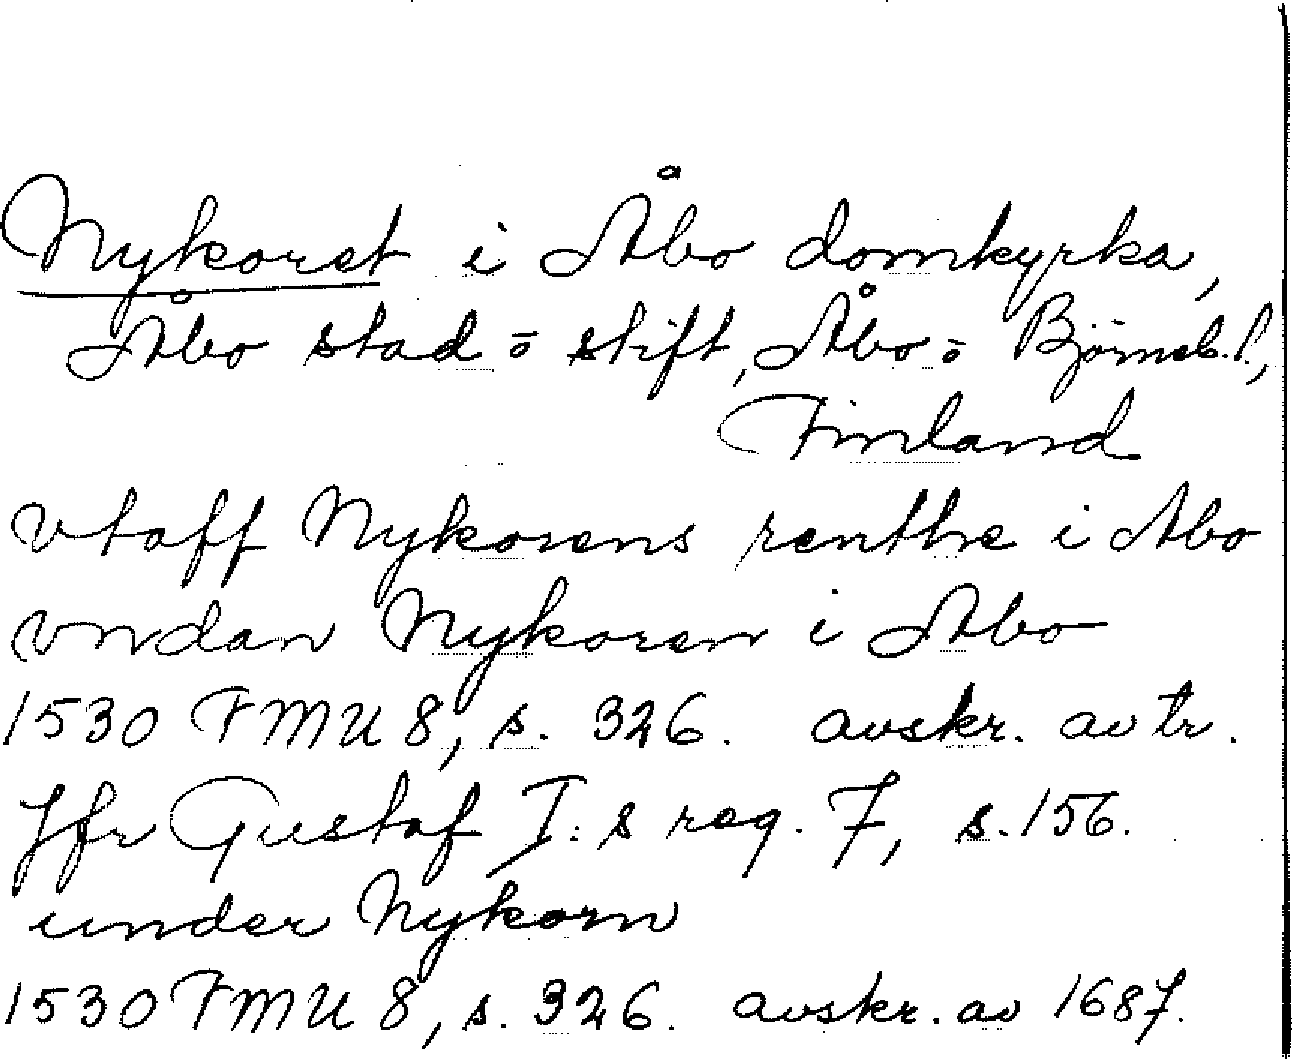 Nykoret i Åbo domkyrka,
Åbo stad o stift, Åbo o Björneb. l.,
Finland
vtaff Nykorens renthe i Abo
vndan Nykoren i Abo
1530 FMU 8, s. 326. avskr. av tr.
Jfr Gustaf I:s reg. 7, s. 156.
under Nykorn
1530 FMU 8, s. 326. avskr. av 1687.